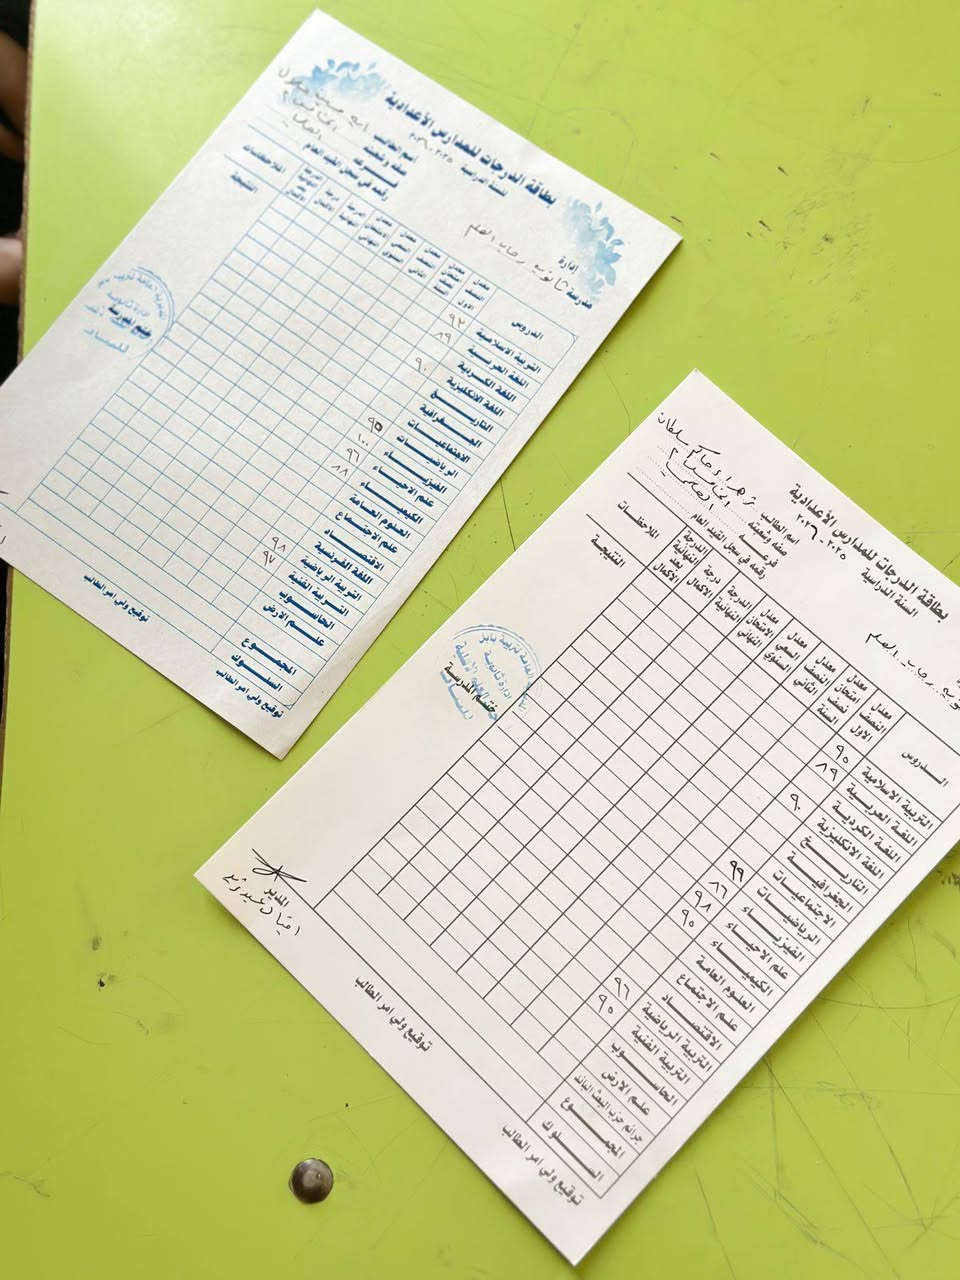 بطاقة الدرجات للمدارس الأعدادية
السنة الدراسية ٢٠٢٥ - ٢٠٢٦
ادارة
مدرسة ثانوية رحاب العلم
اسم الطالب
صفه وشعبته الخامس
رقمه في سجل القيد العام
الدروس
معدل النصف الاول
معدل امتحان نصف السنة
معدل النصف الثاني
معدل السعي السنوي
معدل الامتحان النهائي
الدرجة النهائية
درجة الاكمال
الدرجة النهائية بعد الاكمال
النتيجة
الملاحظات
التربية الاسلامية ٩٢
اللغة العربية ٨٩
اللغة الكردية
اللغة الانكليزية ٩٠
التاريخ
الجغرافية
الاجتماعيات
الرياضيات ٩٥
الفيزياء ١٠٠
علم الاحياء ٩٦
الكيمياء ٨٨
العلوم العامة
علم الاجتماع
الاقتصاد
اللغة الفرنسية
التربية الرياضية ٩٨
التربية الفنية ٩٧
الحاسوب
علم الارض
المجموع
السلوك
توقيع ولي امر الطالب
ختم المدرسة
توقيع ولي امر الطالب
بطاقة الدرجات للمدارس الأعدادية
السنة الدراسية ٢٠٢٥ - ٢٠٢٦
رحاب العلم
اسم الطالب زهراء حاكم سلطان
صفه وشعبته الخامس
فرعه
رقمه في سجل القيد العام
الدروس
معدل النصف الاول
معدل امتحان نصف السنة
معدل النصف الثاني
معدل السعي السنوي
معدل الامتحان النهائي
الدرجة النهائية
درجة الاكمال
الدرجة النهائية بعد الاكمال
النتيجة
الملاحظات
التربية الاسلامية ٩٥
اللغة العربية ٨٩
اللغة الكردية
اللغة الانكليزية ٩٠
التاريخ
الجغرافية
الاجتماعيات
الرياضيات ٩٩
الفيزياء ٨٦
علم الاحياء ٩٨
الكيمياء ٩٥
العلوم العامة
علم الاجتماع
الاقتصاد
التربية الرياضية ٩٦
التربية الفنية ٩٥
الحاسوب
علم الارض
جرائم حزب البعث البائد
المجموع
السلوك
توقيع ولي امر الطالب
ختم المدرسة
المدير
توقيع ولي امر الطالب